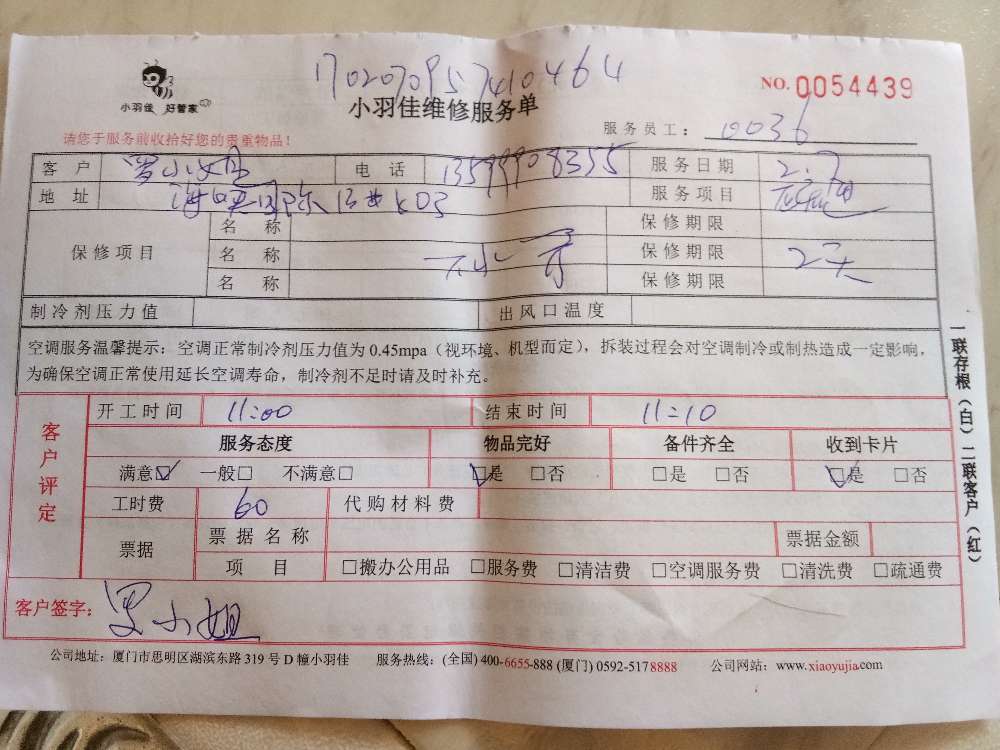 1702070957410464
小羽佳 好管家
小羽佳维修服务单
NO.0054439
请您于服务前收拾好您的贵重物品！
服务员工： 0036
客户 罗小姐 电话 13599908355 服务日期 2.7
地址 服务项目
保修项目 名称 保修期限
名称 保修期限 2天
名称 保修期限
制冷剂压力值 出风口温度
空调服务温馨提示：空调正常制冷剂压力值为 0.45mpa（视环境、机型而定），拆装过程会对空调制冷或制热造成一定影响，
为确保空调正常使用延长空调寿命，制冷剂不足时请及时补充。
客户评定
开工时间 11:00 结束时间 11:10
服务态度 物品完好 备件齐全 收到卡片
满意☑ 一般□ 不满意□ ☑是 □否 □是 □否 ☑是 □否
工时费 60 代购材料费
票据 票据名称 票据金额
项目 □搬办公用品 □服务费 □清洁费 □空调服务费 □清洗费 □疏通费
客户签字： 罗小姐
一联存根（白）二联客户（红）
公司地址：厦门市思明区湖滨东路 319 号 D 幢小羽佳 服务热线：(全国) 400-6655-888 (厦门) 0592-5178888 公司网站：www.xiaoyujia.com